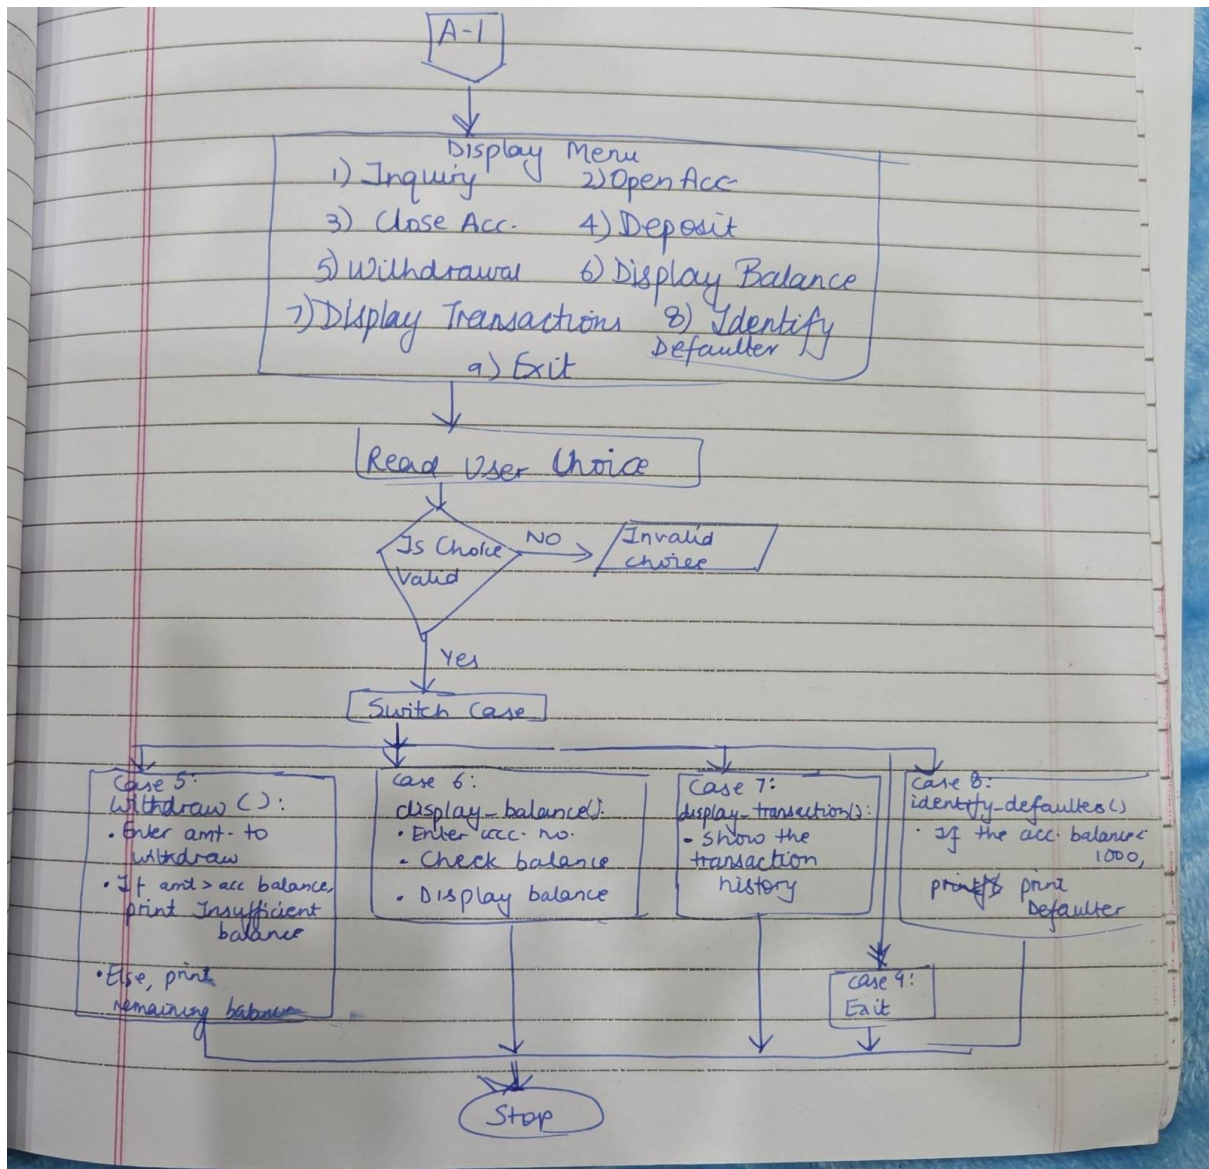 A-1
Display Menu
1) Inquiry 2) Open Acc
3) Close Acc. 4) Deposit
5) Withdrawal 6) Display Balance
7) Display Transactions 8) Identify
Defaulter
9) Exit
Read User Choice
Is Choice
Valid
NO
Invalid
choice
Yes
Switch Case
Case 5:
withdraw ( ):
• Enter amt. to
withdraw
• If amt > acc balance,
print Insufficient
balance
• Else, print
remaining balance
Case 6:
display_balance():
• Enter acc. no.
- Check balance
• Display balance
Case 7:
display_transaction():
- Show the
transaction
history
Case 8:
identify_defaulter()
• If the acc. balance <
1000,
print
Defaulter
Case 9:
Exit
Stop